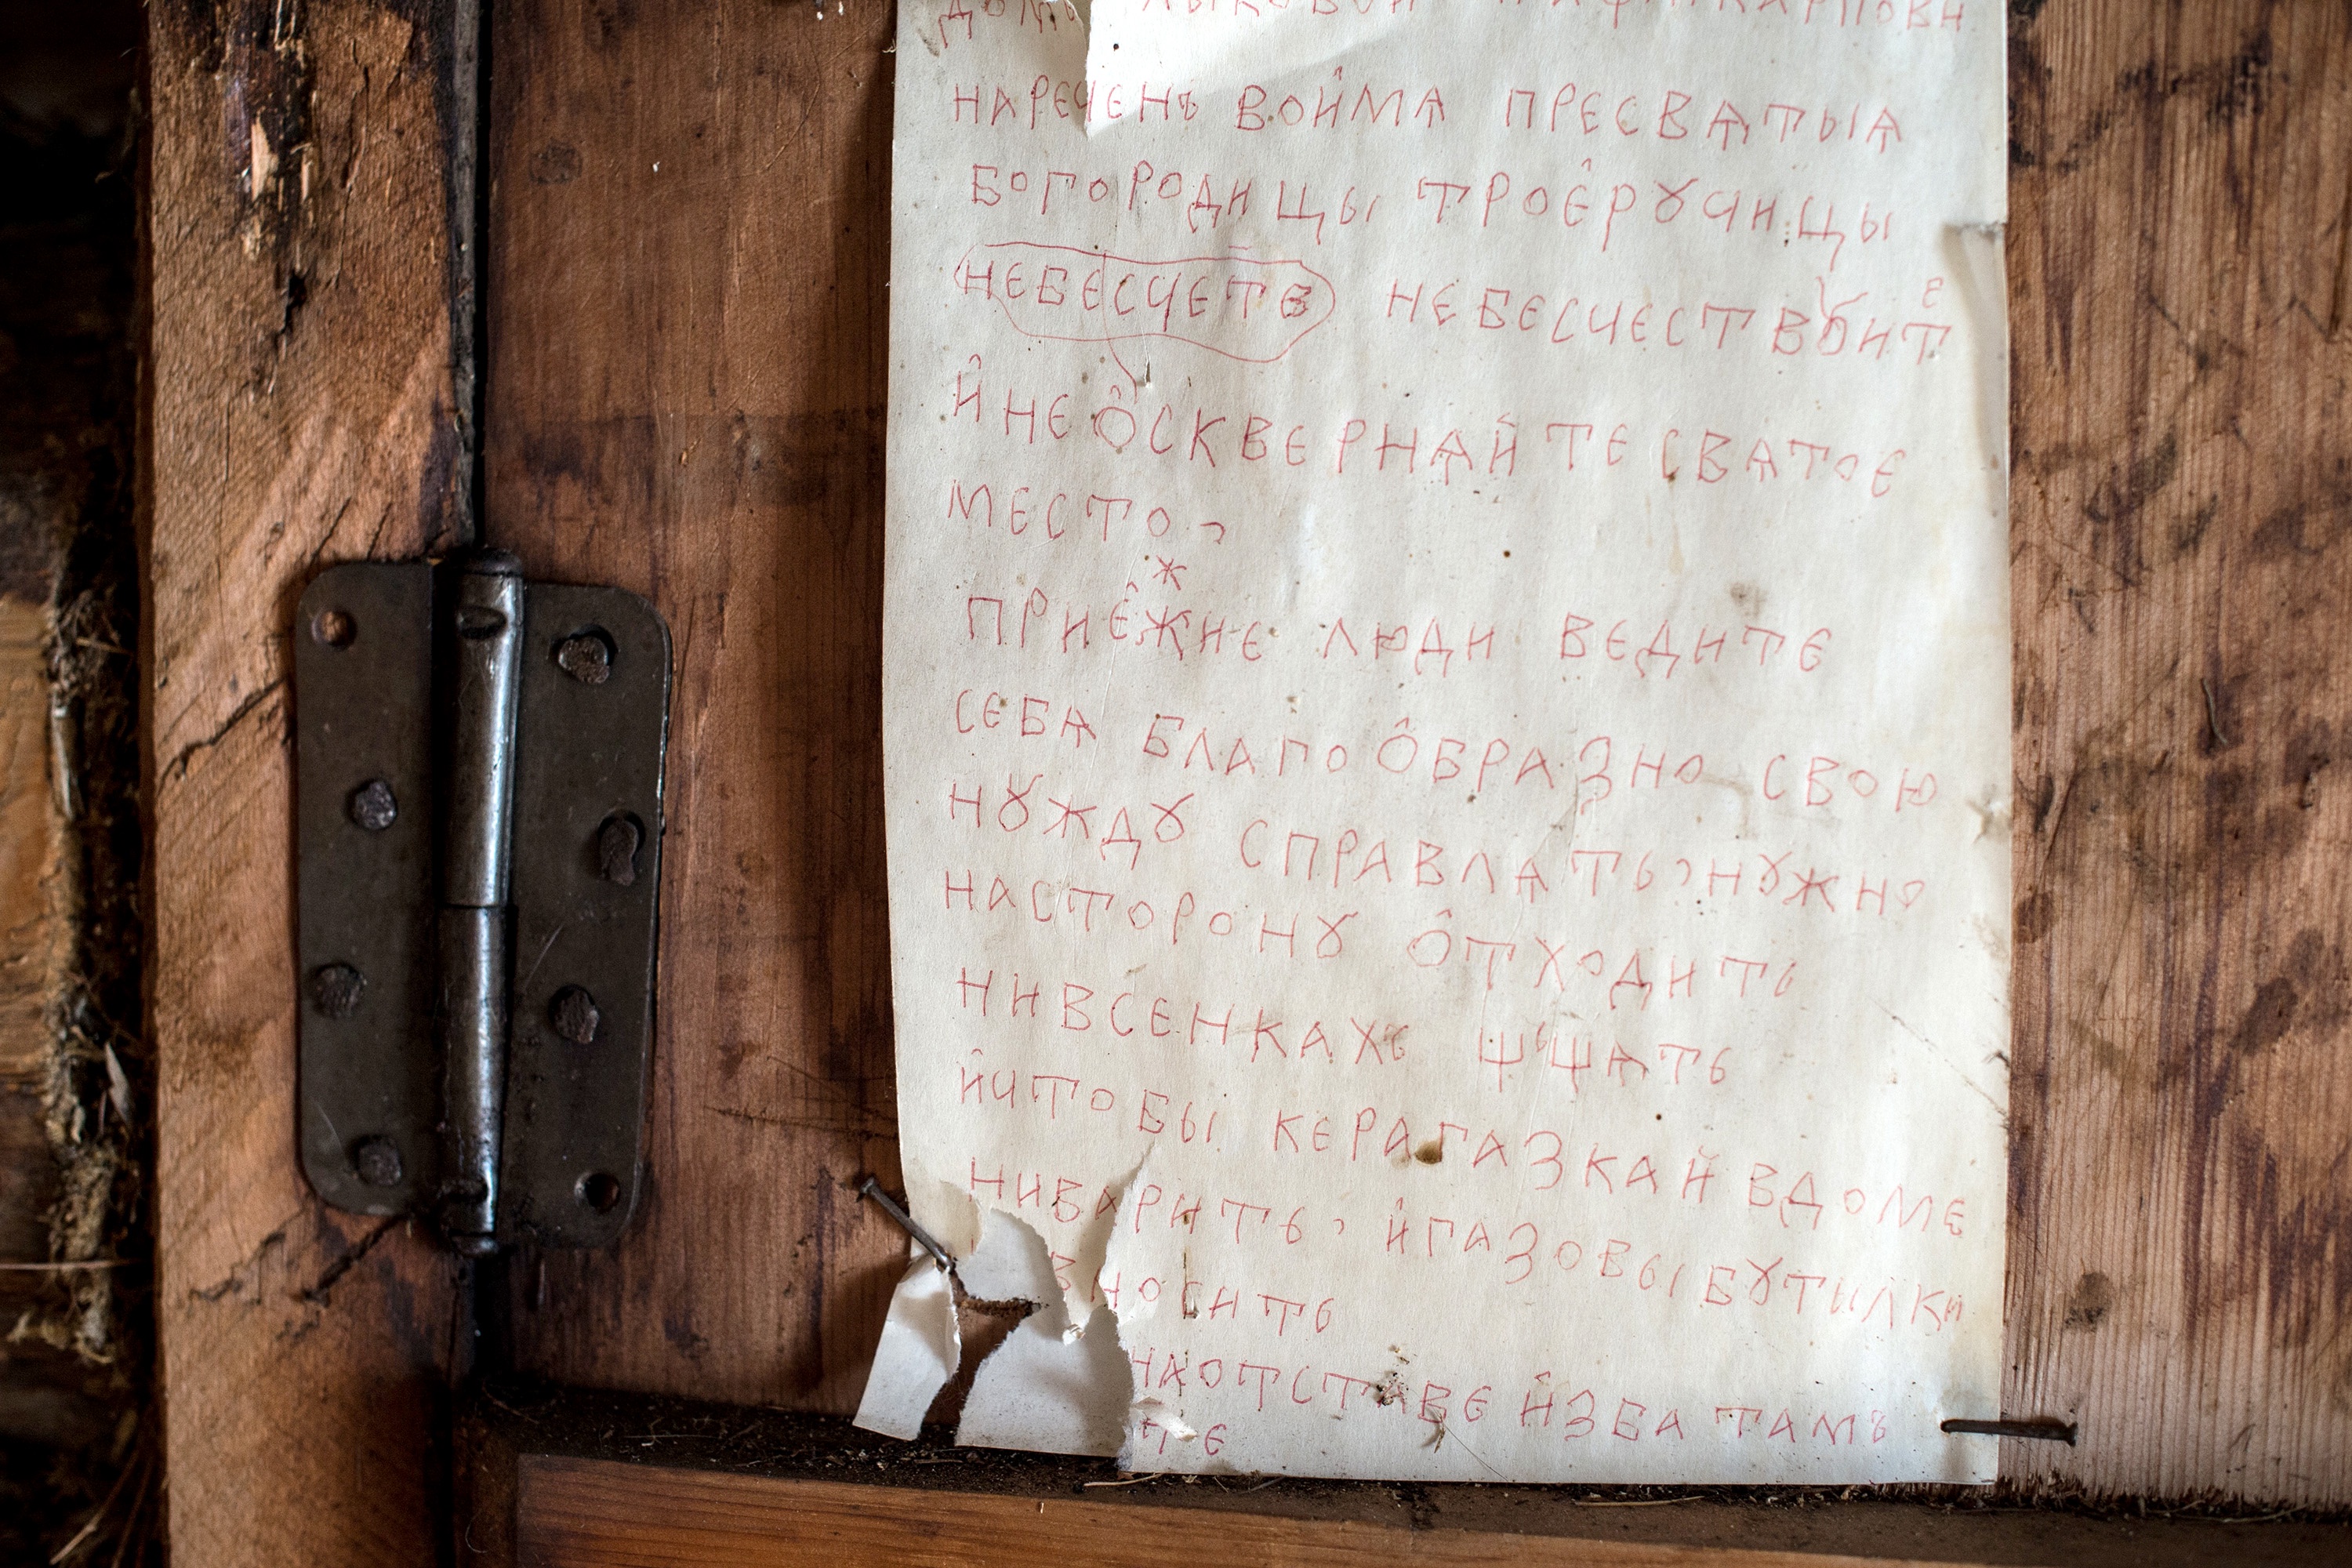 домъ Лыковой Агафии Карповн
нареченъ воимѧ пресвѧтыѧ
богородицы троерꙋчицы
небесчетв небесчествꙋит
и не оскверняйте свѧтое
место,
приежие люди ведите
себѧ благообразно свою
нꙋждꙋ справлѧть, нꙋжно
насторонꙋ отходить
нивсенкахъ
ичтобы керагазкай вдоме
ниварить, игазовы бꙋтилки
вносить
наотставе изба тамъ
те